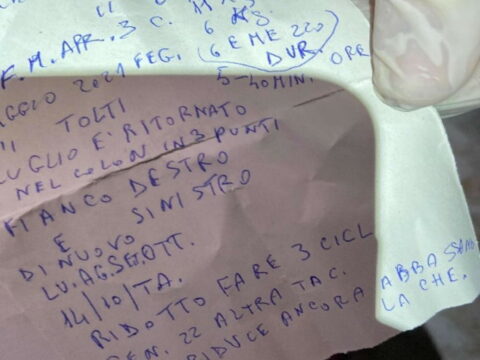 F. M. APR. 3 C.
6
MAGGIO 2021 FEG. (6 E MEZZO
DUR. ORE
5-40 MIN.
TOLTI
LUGLIO E' RITORNATO
NEL COLON IN 3 PUNTI
FIANCO DESTRO
E SINISTRO
DI NUOVO
LU. AG. SE OTT.
14/10/TA.
RIDOTTO FARE 3 CICL
GEN. 22 ALTRA TAC.
RIDUCE ANCORA ABBASSANO
LA CHE.